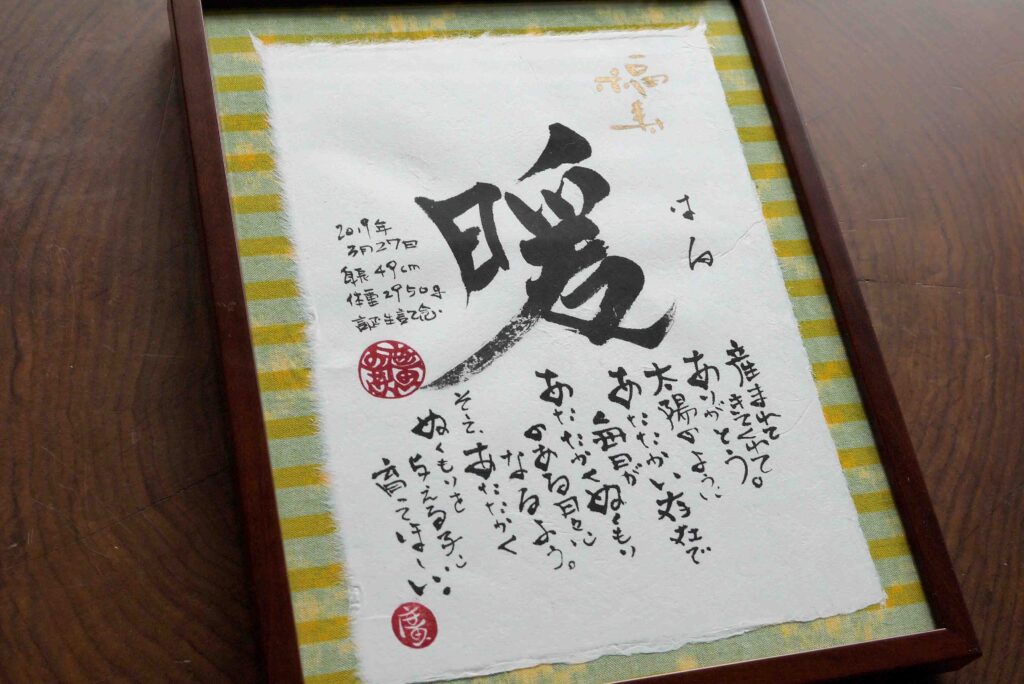 暖
はる
2019年
3月27日
身長49cm
体重2950g
誕生記念。
産まれて
きてくれて。
ありがとう
太陽のように
あたたかい存在で
毎日が
あたたかくぬくもり
のある日々に
なるよう。
そして、あたたかく
ぬくもりを
与える子に
育ってほしい。